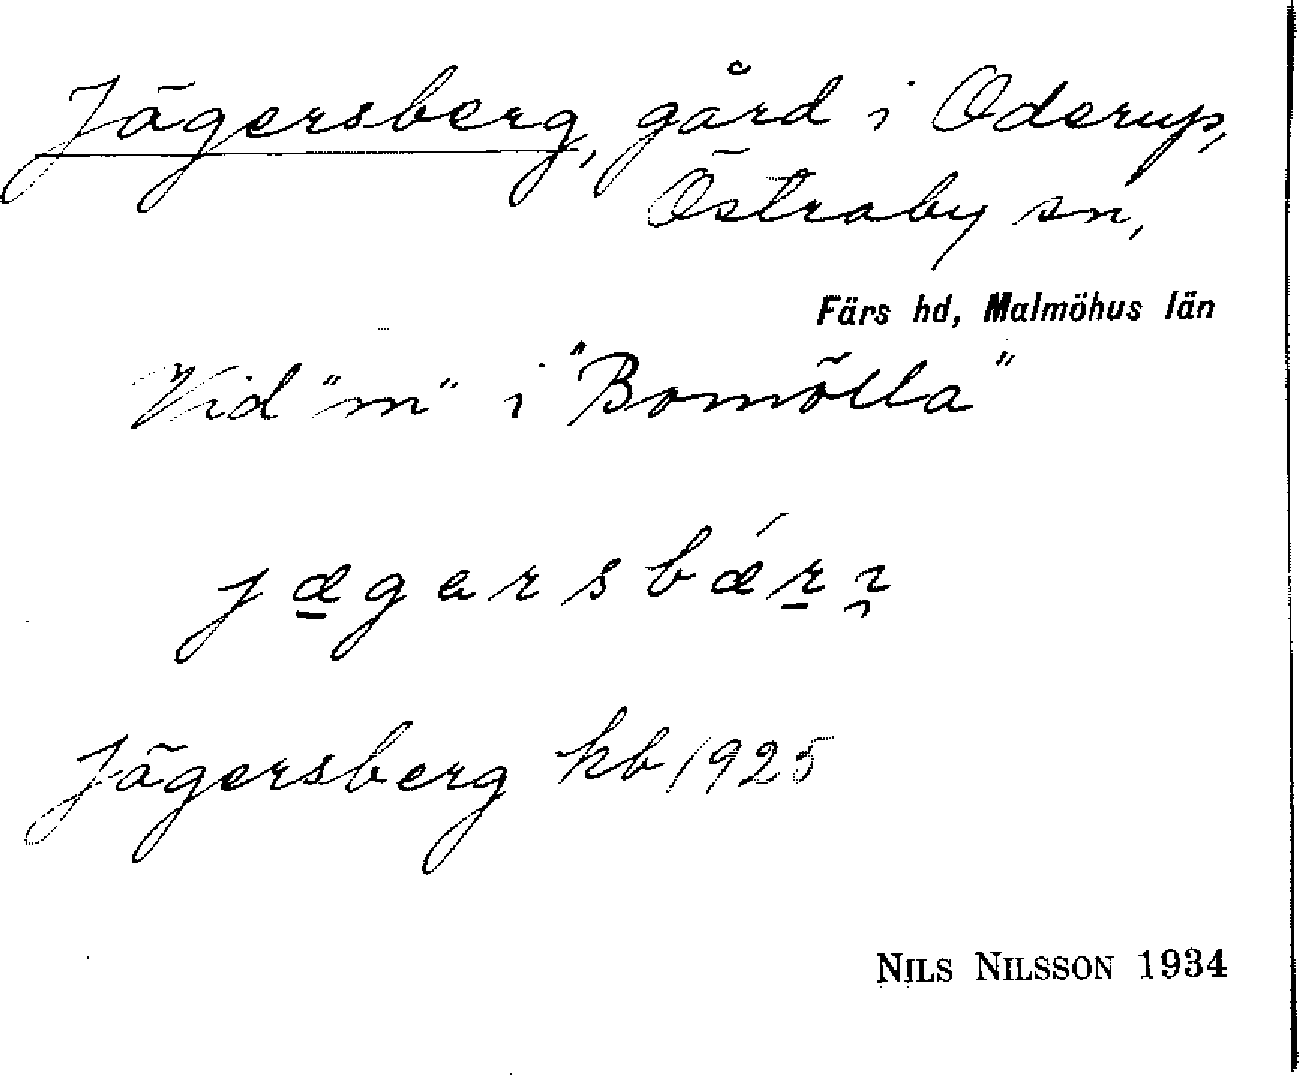 Jägersberg, gård i Oderup,
Östraby sn,
Färs hd, Malmöhus län
Vid "m" i "Bomölla"
jæ̲garsbǽr̲ɿ̯
Jägersberg kb 1925
NILS NILSSON 1934